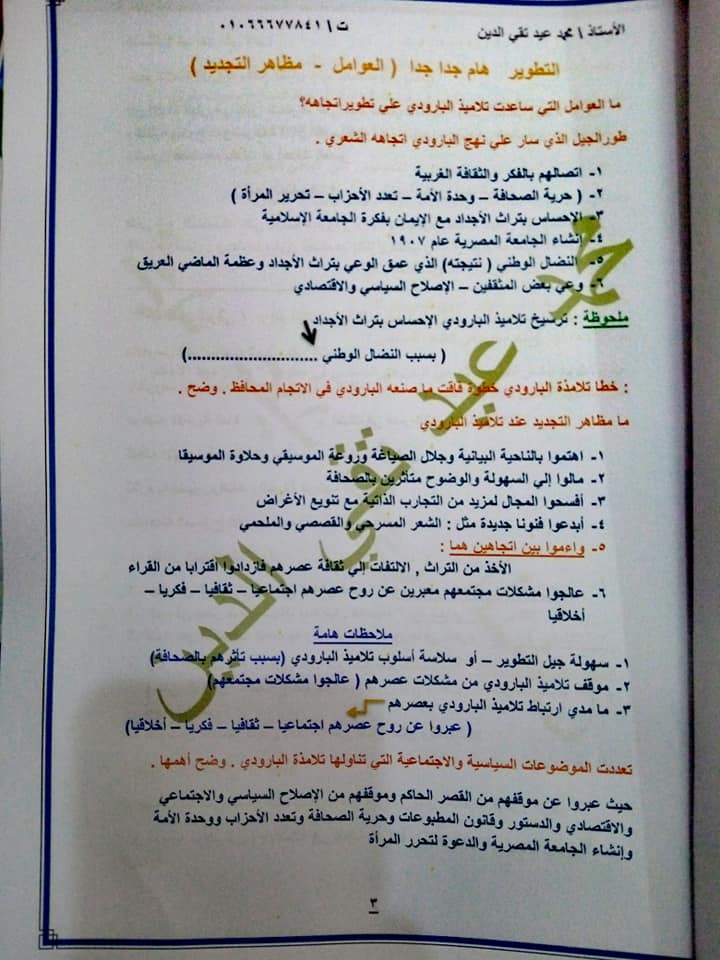 الأستاذ \ محمد عيد تقي الدين ت \ ٠١٠٦٦٦٧٧٨٤١
التطوير هام جدا جدا ( العوامل - مظاهر التجديد )
ما العوامل التي ساعدت تلاميذ البارودي علي تطويراتجاهه؟
طورالجيل الذي سار علي نهج البارودي اتجاهه الشعري .
١- اتصالهم بالفكر والثقافة الغربية
٢- ( حرية الصحافة – وحدة الأمة – تعدد الأحزاب – تحرير المرأة )
٣- الإحساس بتراث الأجداد مع الإيمان بفكرة الجامعة الإسلامية
٤- إنشاء الجامعة المصرية عام ١٩٠٧
٥- النضال الوطني ( نتيجته) الذي عمق الوعي بتراث الأجداد وعظمة الماضي العريق
٦- وعي بعض المثقفين – الإصلاح السياسي والاقتصادي
ملحوظة : ترسيخ تلاميذ البارودي الإحساس بتراث الأجداد
( بسبب النضال الوطني ............................)
: خطا تلامذة البارودي خطوة فاقت ما صنعه البارودي في الاتجام المحافظ . وضح .
ما مظاهر التجديد عند تلاميذ البارودي
١- اهتموا بالناحية البيانية وجلال الصياغة وروعة الموسيقي وحلاوة الموسيقا
٢- مالوا إلي السهولة والوضوح متأثرين بالصحافة
٣- أفسحوا المجال لمزيد من التجارب الذاتية مع تنويع الأغراض
٤- أبدعوا فنونا جديدة مثل : الشعر المسرحي والقصصي والملحمي
٥- واءموا بين اتجاهين هما :
الأخذ من التراث , الالتفات إلي ثقافة عصرهم فازدادوا اقترابا من القراء
٦- عالجوا مشكلات مجتمعهم معبرين عن روح عصرهم اجتماعيا – ثقافيا – فكريا –
أخلاقيا
ملاحظات هامة
١- سهولة جيل التطوير – أو سلاسة أسلوب تلاميذ البارودي (بسبب تأثرهم بالصحافة)
٢- موقف تلاميذ البارودي من مشكلات عصرهم ( عالجوا مشكلات مجتمعهم)
٣- ما مدي ارتباط تلاميذ البارودي بعصرهم
( عبروا عن روح عصرهم اجتماعيا – ثقافيا – فكريا – أخلاقيا)
تعددت الموضوعات السياسية والاجتماعية التي تناولها تلامذة البارودي . وضح أهمها .
حيث عبروا عن موقفهم من القصر الحاكم وموقفهم من الإصلاح السياسي والاجتماعي
والاقتصادي والدستور وقانون المطبوعات وحرية الصحافة وتعدد الأحزاب ووحدة الأمة
وإنشاء الجامعة المصرية والدعوة لتحرر المرأة
٣
محمد عيد تقي الدين